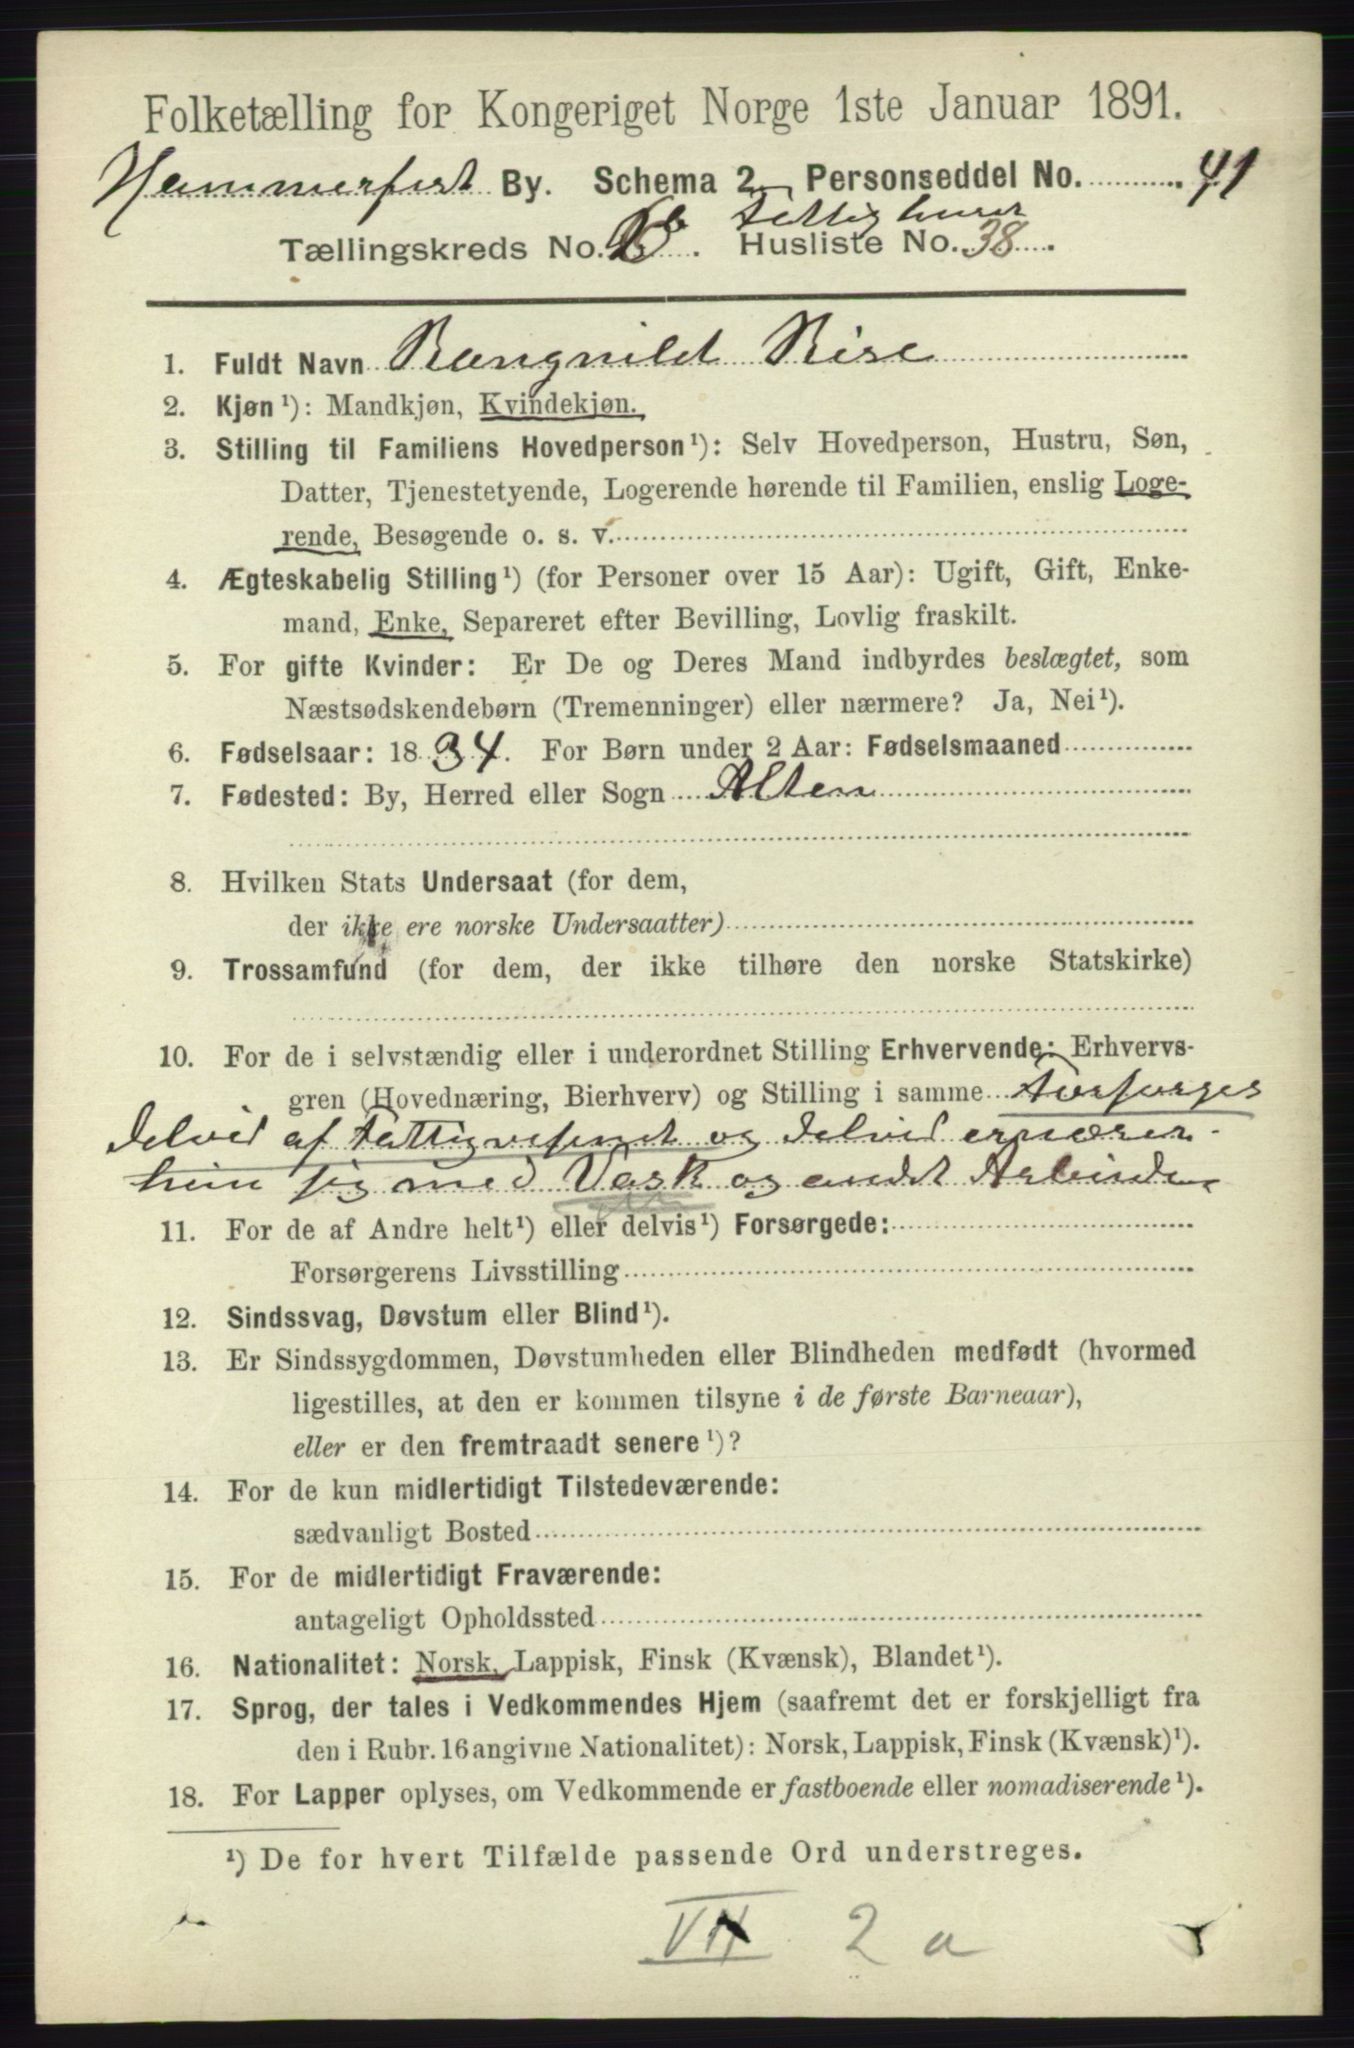 Folketælling for Kongeriget Norge 1ste Januar 1891.
Hammerfest By. Schema 2. Personseddel No. 41
Fattighuset
Tællingskreds No. 6. Husliste No. 38.
1. Fuldt Navn Rangnild Rise
2. Kjøn¹): Mandkjøn, Kvindekjøn.
3. Stilling til Familiens Hovedperson¹): Selv Hovedperson, Hustru, Søn,
Datter, Tjenestetyende, Logerende hørende til Familien, enslig Loge-
rende, Besøgende o. s. v.
4. Ægteskabelig Stilling¹) (for Personer over 15 Aar): Ugift, Gift, Enke-
mand, Enke, Separeret efter Bevilling, Lovlig fraskilt.
5. For gifte Kvinder: Er De og Deres Mand indbyrdes beslægtet, som
Næstsødskendebørn (Tremenninger) eller nærmere? Ja, Nei¹).
6. Fødselsaar: 1834. For Børn under 2 Aar: Fødselsmaaned
7. Fødested: By, Herred eller Sogn Alten
8. Hvilken Stats Undersaat (for dem,
der ikke ere norske Undersaatter)
9. Trossamfund (for dem, der ikke tilhøre den norske Statskirke)
10. For de i selvstændig eller i underordnet Stilling Erhvervende: Erhvervs-
gren (Hovednæring, Bierhverv) og Stilling i samme Forsørges
delvis af Fattigvesenet og delvis ernærer
hun sig med Vask og andet Arbeide
11. For de af Andre helt¹) eller delvis¹) Forsørgede:
Forsørgerens Livsstilling
12. Sindssvag, Døvstum eller Blind¹).
13. Er Sindssygdommen, Døvstumheden eller Blindheden medfødt (hvormed
ligestilles, at den er kommen tilsyne i de første Barneaar),
eller er den fremtraadt senere¹)?
14. For de kun midlertidigt Tilstedeværende:
sædvanligt Bosted
15. For de midlertidigt Fraværende:
antageligt Opholdssted
16. Nationalitet: Norsk, Lappisk, Finsk (Kvænsk), Blandet¹).
17. Sprog, der tales i Vedkommendes Hjem (saafremt det er forskjelligt fra
den i Rubr. 16 angivne Nationalitet): Norsk, Lappisk, Finsk (Kvænsk)¹).
18. For Lapper oplyses, om Vedkommende er fastboende eller nomadiserende¹).
¹) De for hvert Tilfælde passende Ord understreges.
2 a